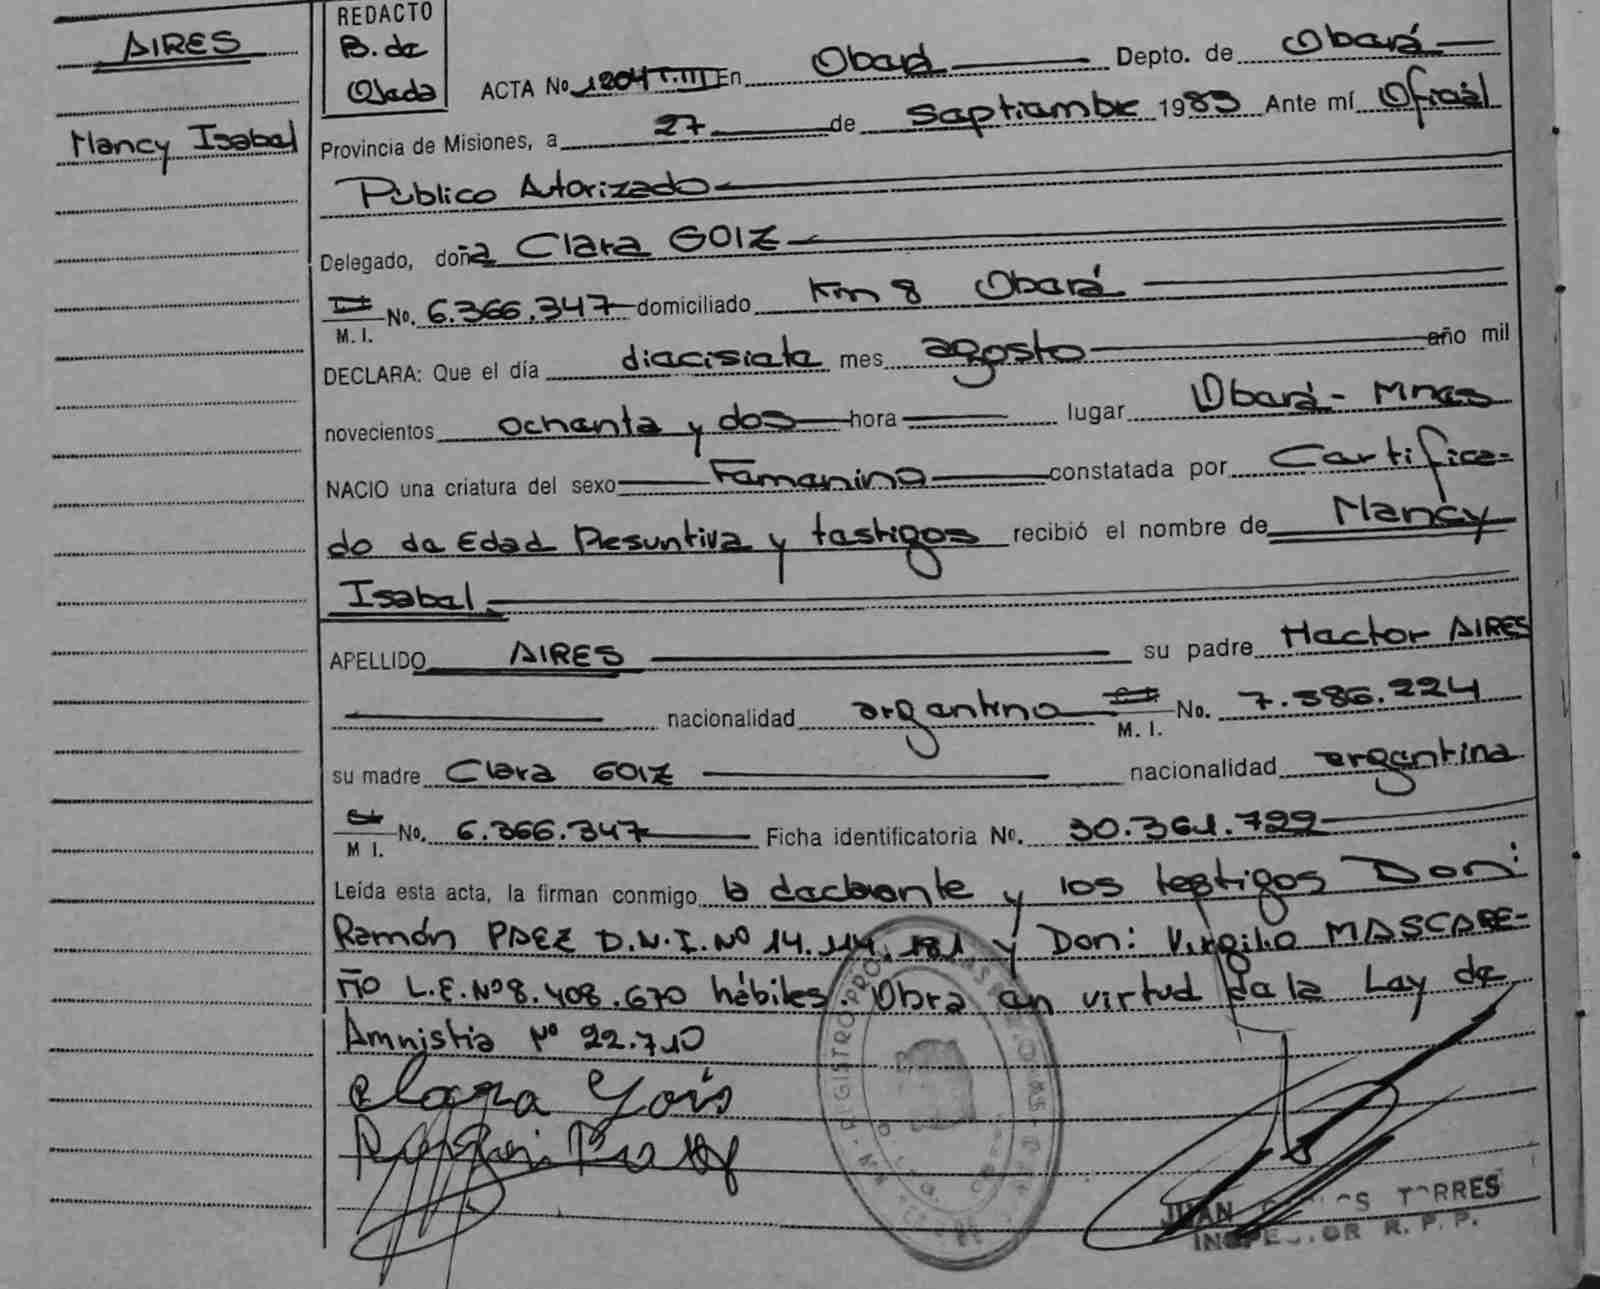 AIRES
Nancy Isabel
REDACTO
B. de
Ojeda
ACTA No 1204 T.III En Oberá Depto. de Oberá
Provincia de Misiones, a 27 de septiembre 1983 Ante mí Oficial
Público Autorizado
Delegado, doña Clara GOIZ
M. I. No. 6.366.347 domiciliado Km 8 Oberá
DECLARA: Que el día diecisiete mes agosto año mil
novecientos ochenta y dos hora lugar Oberá - Mnes
NACIO una criatura del sexo Femenino constatada por Certifica-
do de Edad Presuntiva y testigos recibió el nombre de Nancy
Isabel
APELLIDO AIRES su padre Hector AIRES
nacionalidad argentino M. I. No. 7.586.224
su madre Clara GOIZ nacionalidad argentina
M I. No. 6.366.347 Ficha identificatoria No. 30.361.799
Leída esta acta, la firman conmigo la declarante y los testigos Don:
Ramón PAEZ D.N.I. Nº 14.114.181 y Don: Virgilio MASCARE-
ÑO L.E. Nº 8.408.670 hábiles. Obra en virtud de la Ley de
Amnistia Nº 22.710
Clara Gois
JUAN TORRES
INSPECTOR R. P. P.